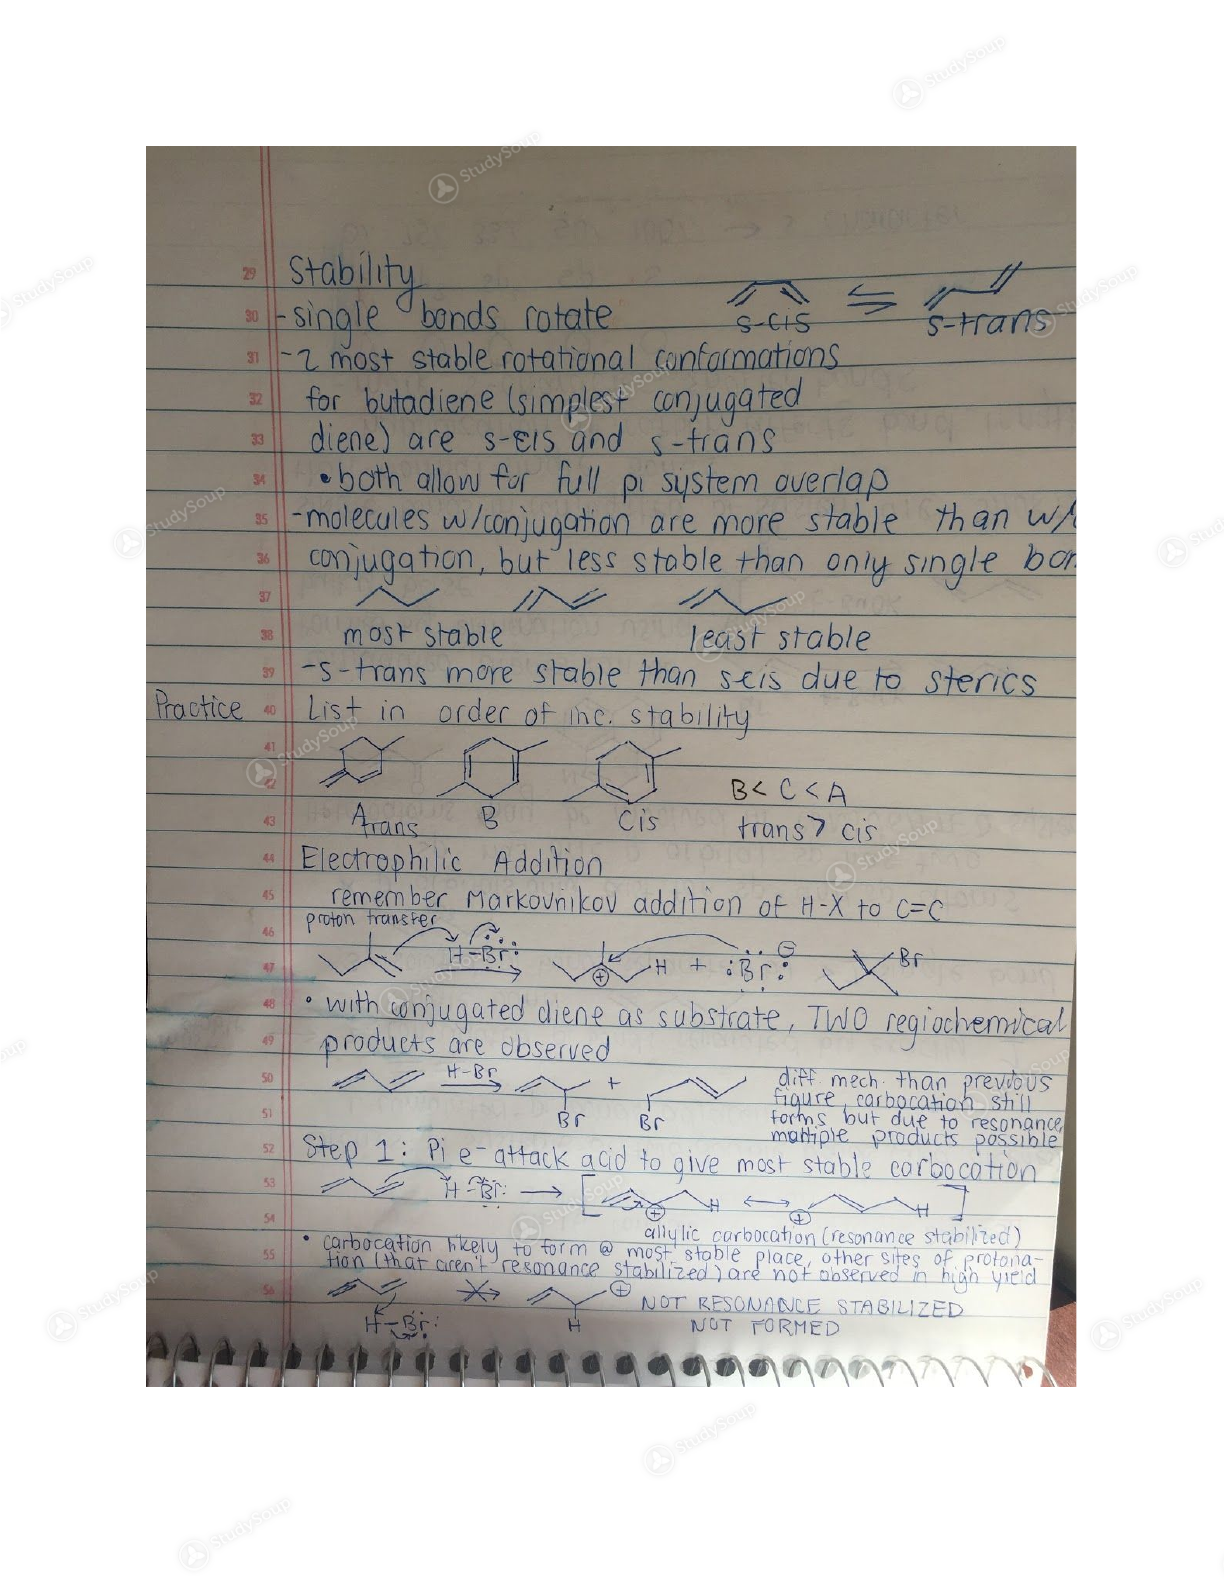 StudySoup
29 Stability
30 -single bonds rotate s-cis s-trans
31 -2 most stable rotational conformations
32 for butadiene (simplest conjugated
33 diene) are s-cis and s-trans
34 • both allow for full pi system overlap
35 -molecules w/conjugation are more stable than w/
36 conjugation, but less stable than only single bon
37
38 most stable least stable
39 -s-trans more stable than s-cis due to sterics
Practice 40 List in order of inc. stability
41
42 B< C < A
43 A trans B Cis trans > cis
44 Electrophilic Addition
45 remember Markovnikov addition of H-X to C=C
proton transfer
46 H-Br:
47 ⊕ H + :Br: ⊖ Br
48 • with conjugated diene as substrate, TWO regiochemical
49 products are observed
50 H-Br + diff. mech. than previous
figure, carbocation still
51 Br Br forms but due to resonance,
multiple products possible
52 Step 1: Pi e- attack acid to give most stable carbocation
53 H-Br: ⊕ H ⊕ H
54 allylic carbocation (resonance stabilized)
• carbocation likely to form @ most stable place, other sites of protona-
55 tion (that aren't resonance stabilized) are not observed in high yield
56 ⊕ NOT RESONANCE STABILIZED
H-Br: H NOT FORMED